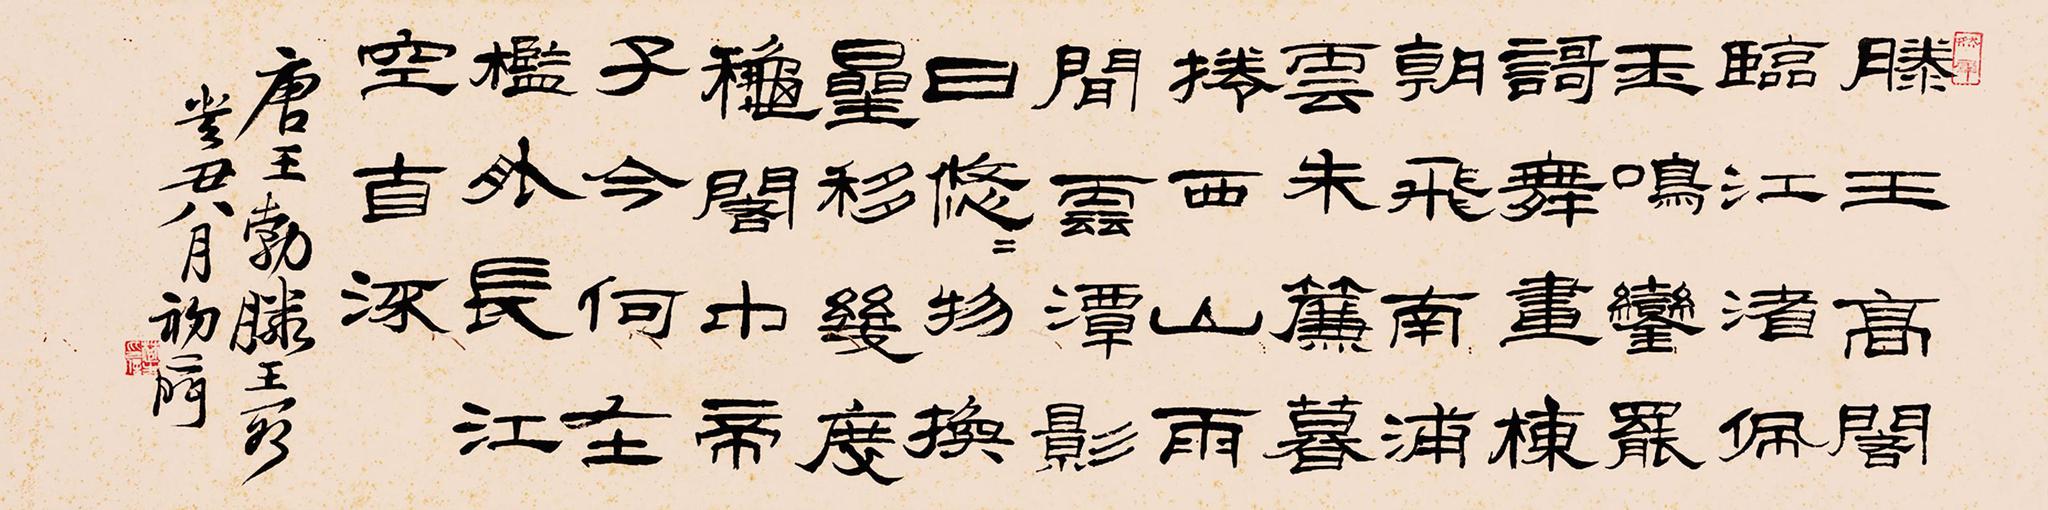 滕王高閣
臨江渚佩
玉鳴鑾罷
謌舞畫棟
朝飛南浦
雲朱簾暮
捲西山雨
間雲潭影
日悠=物換
曐移幾度
穐閣中帝
子今何在
檻外長江
空自流
唐王勃滕王閣
癸丑八月初